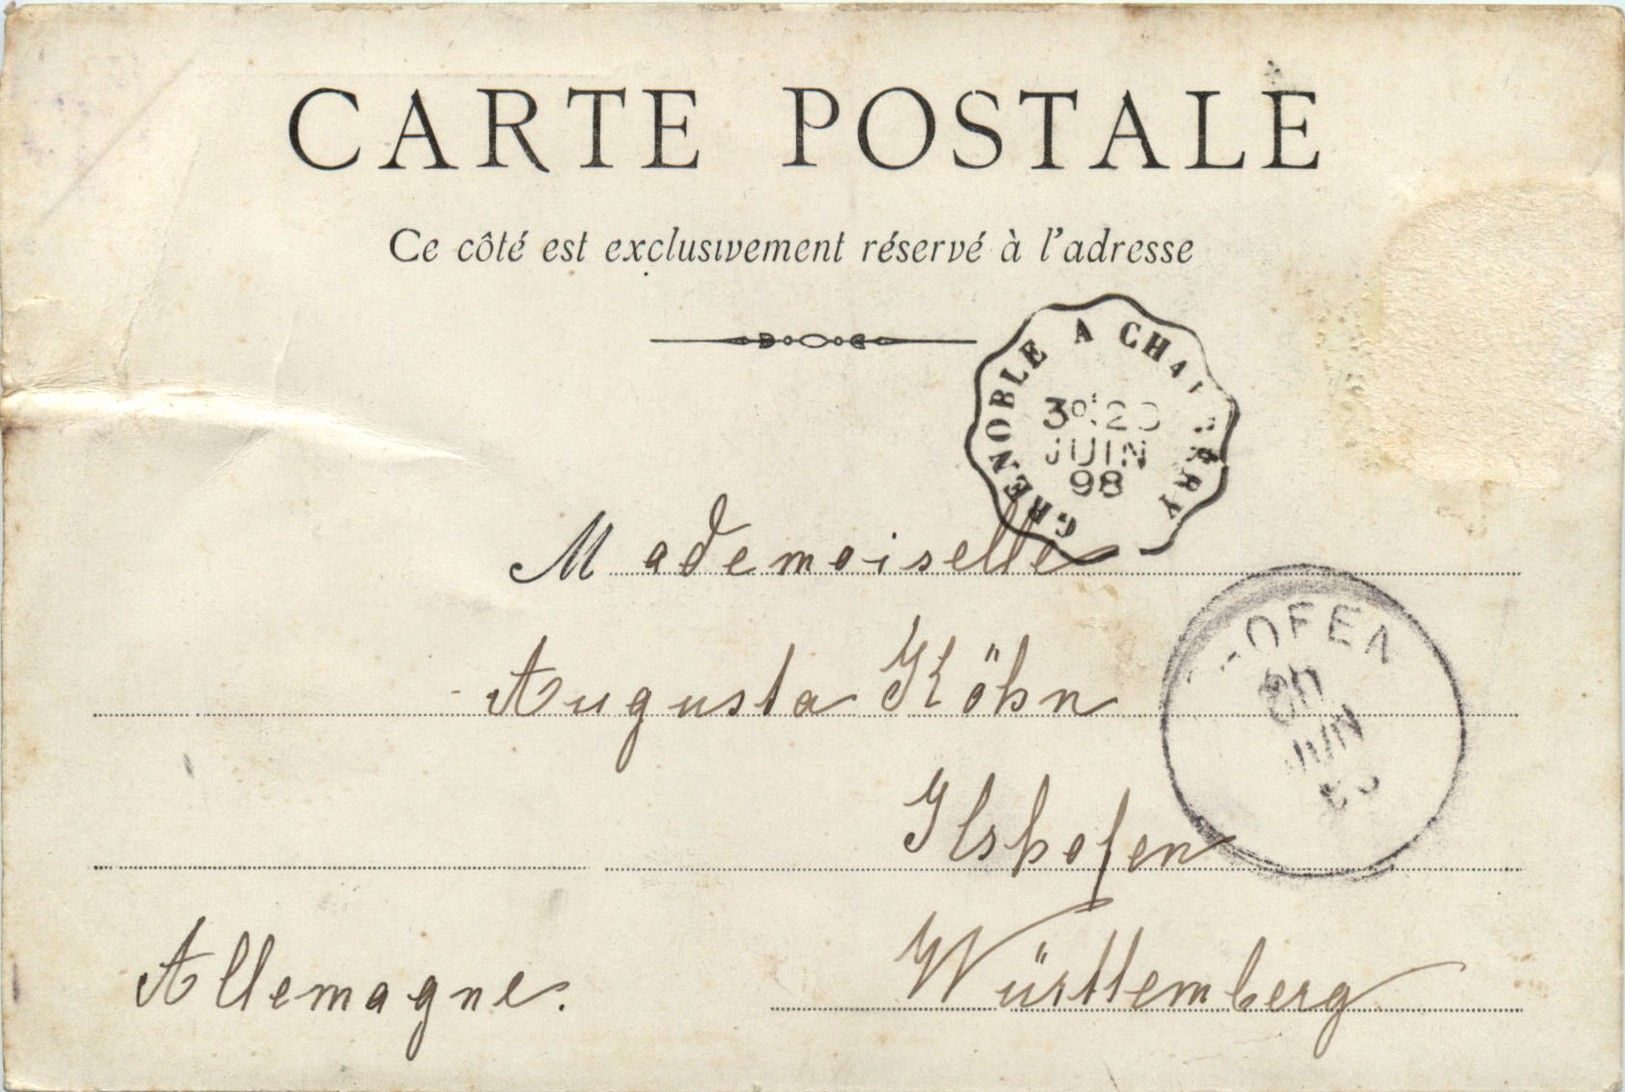 CARTE POSTALE
Ce côté est exclusivement réservé à l'adresse
GRENOBLE A CHAMBERRY
JUIN
98
Mademoiselle
Augusta Köhn
Ilshofen
Württemberg
Allemagne.
HOFEN
JUN